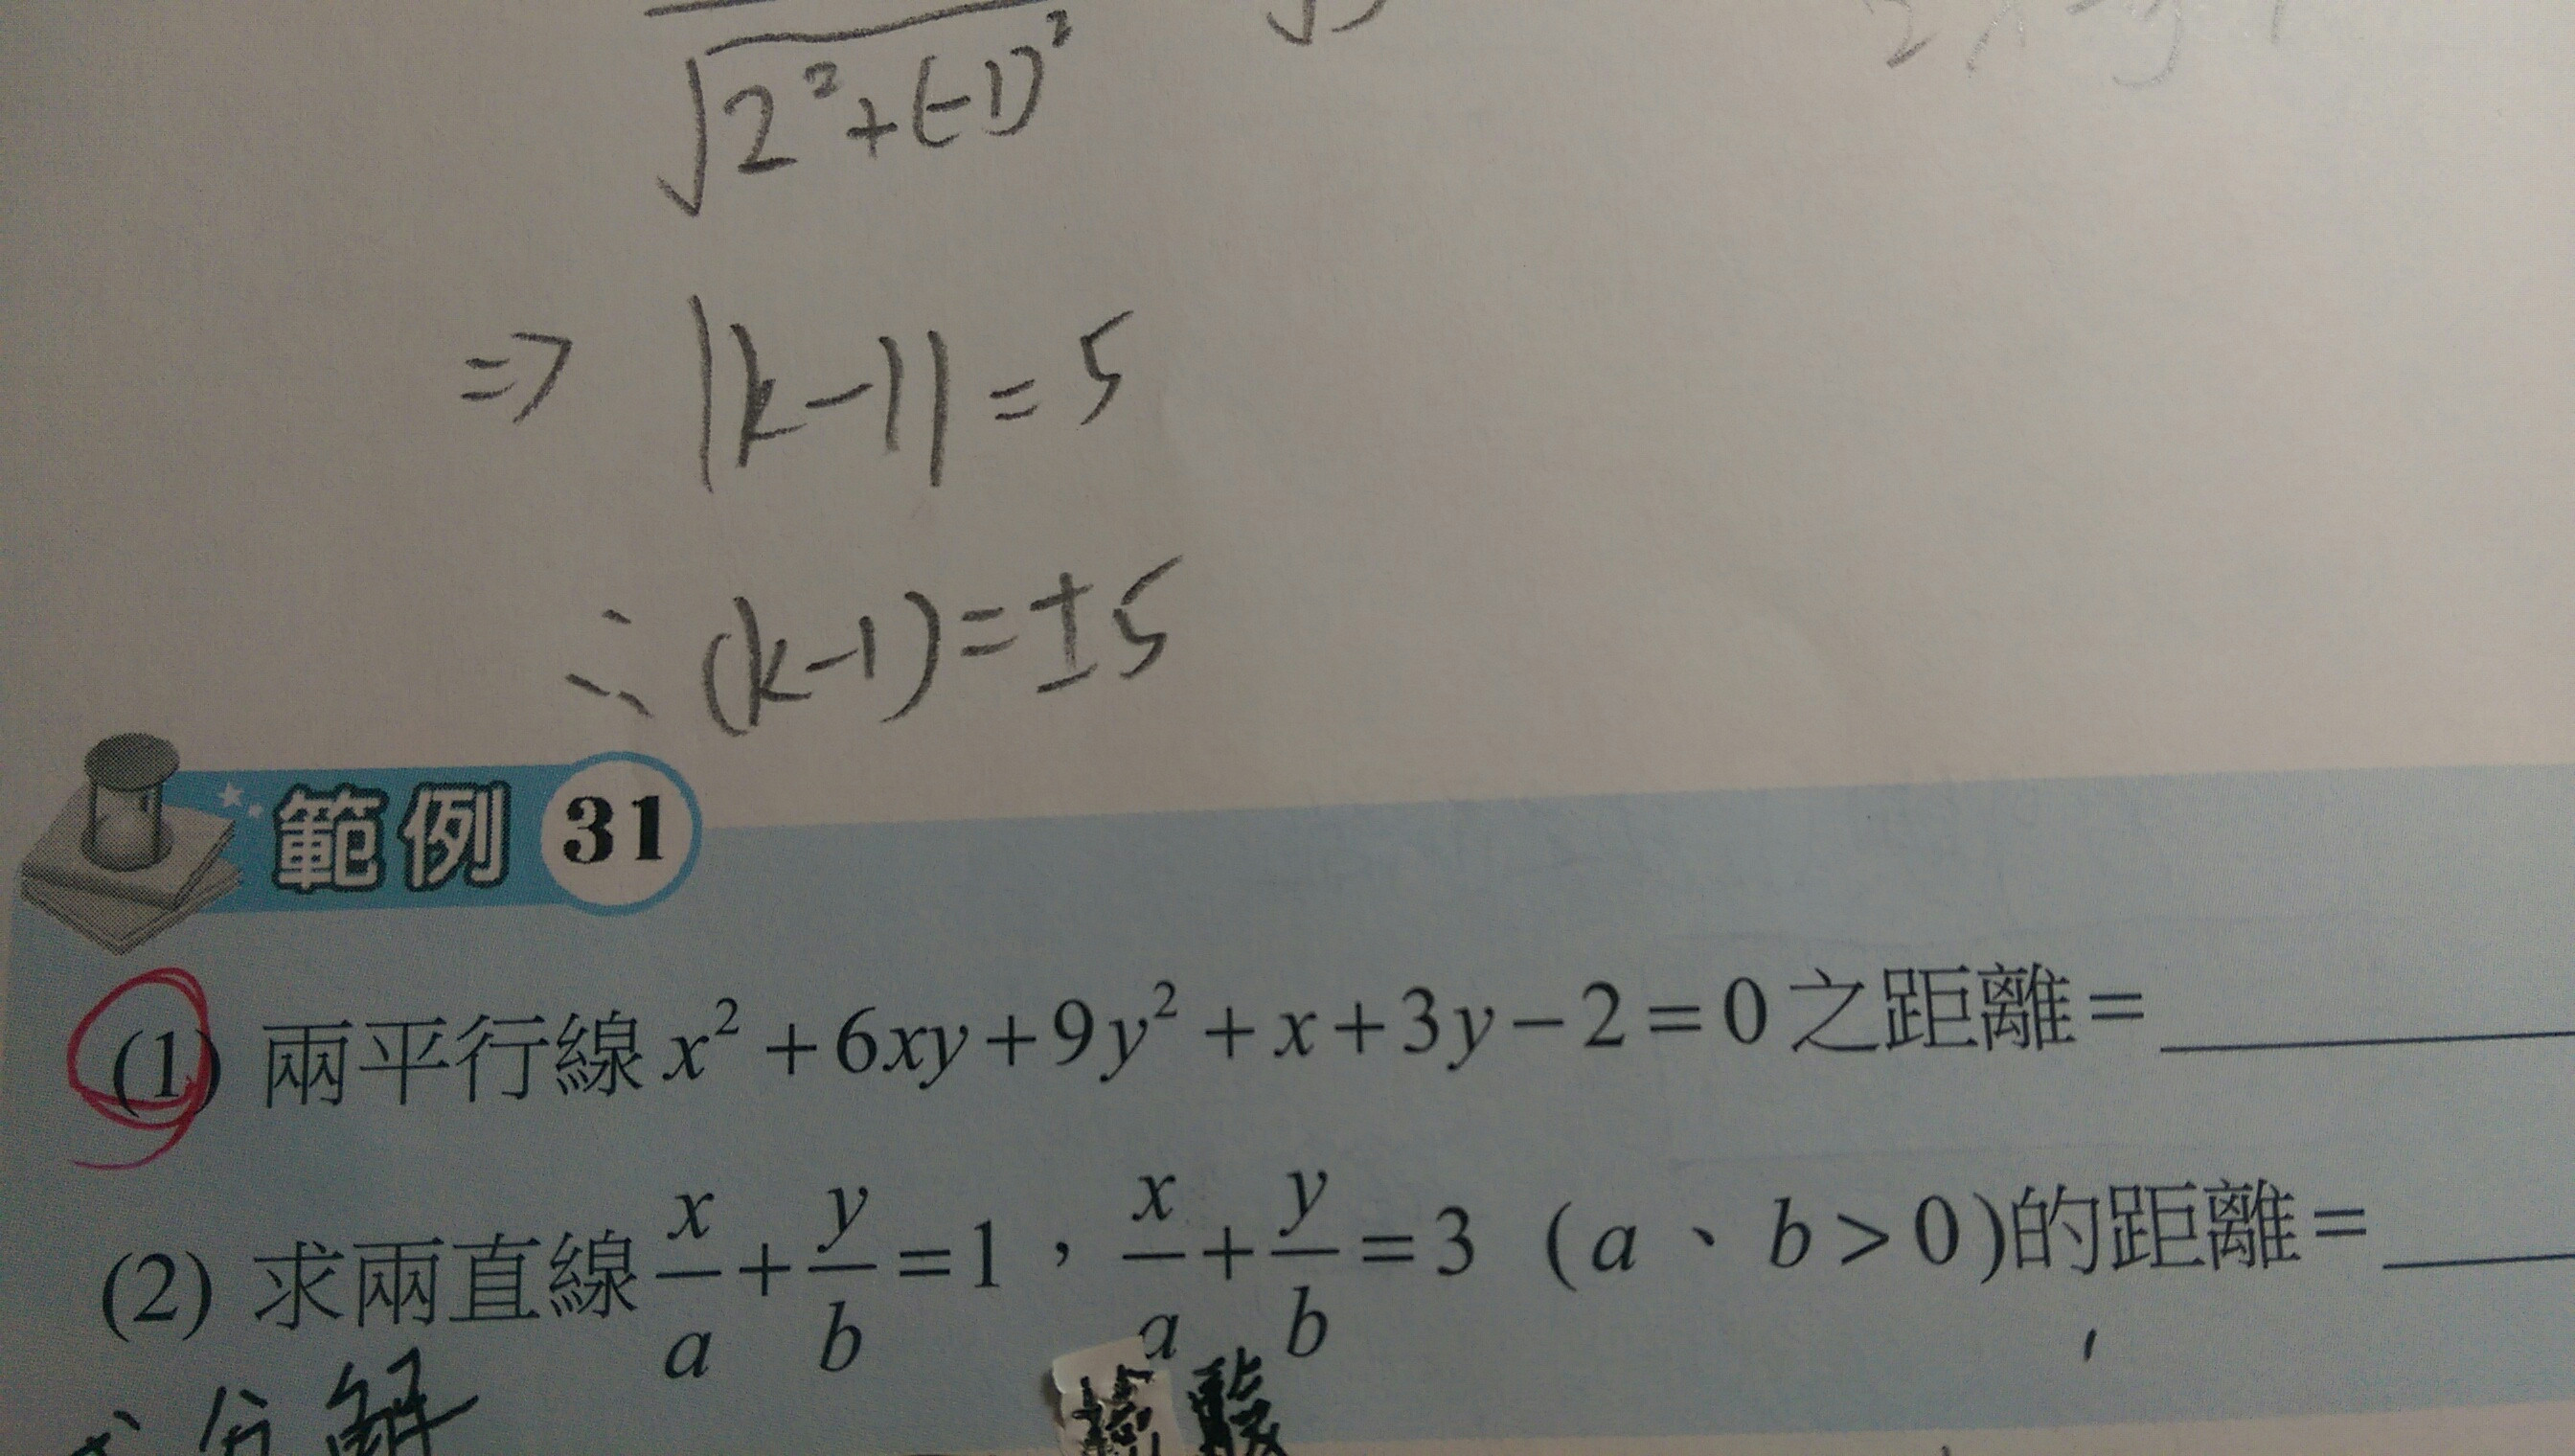 √2²+(-1)²
=> |k-1|=5
∴ (k-1)=±5
範例 31
(1) 兩平行線 x²+6xy+9y²+x+3y-2=0 之距離=
(2) 求兩直線 x/a+y/b=1,x/a+y/b=3 (a、b>0)的距離=
分解
驗